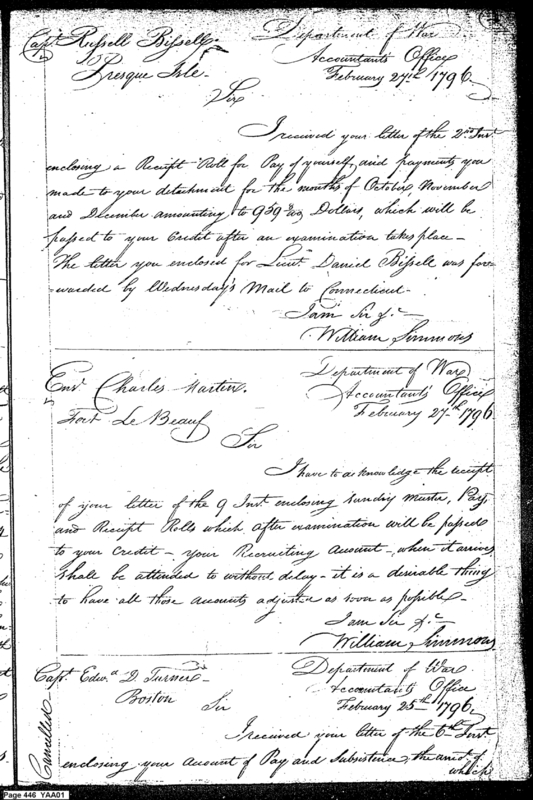 Capt. Russell Bissell.
Presque Isle.
Department of War
Accountants Office
February 27th. 1796.
Sir
I received your letter of the 2nd. Inst.
enclosing a Receipt Roll for Pay of yourself, and payments you
made to your detachment for the months of October, November
and December amounting to 959 Dollars, which will be
passed to your Credit after an examination takes place—
The letter you enclosed for Lieut. Daniel Bissell was for-
warded by Wednesday's Mail to Connecticut.
I am Sir &c
William Simmons
Ensn. Charles Martin.
Fort Le Beauf
Department of War
Accountant's Office
February 27th. 1796.
Sir
I have to acknowledge the receipt
of your letter of the 9 Inst. enclosing sundry muster, Pay,
and Receipt Rolls which after examination will be passed
to your Credit — your Recruiting Account — when it arrives
shall be attended to without delay — it is a desirable thing
to have all those accounts adjusted as soon as possible.
I am Sir &c
William Simmons
Capt. Edwd. D. Turner
Boston
Department of War
Accountants Office
February 25th. 1796.
Sir
I received your letter of the 6th. Inst
enclosing your Account of Pay and Subsistence, the amot. of
which
Cancelled
Page 446 YAA01